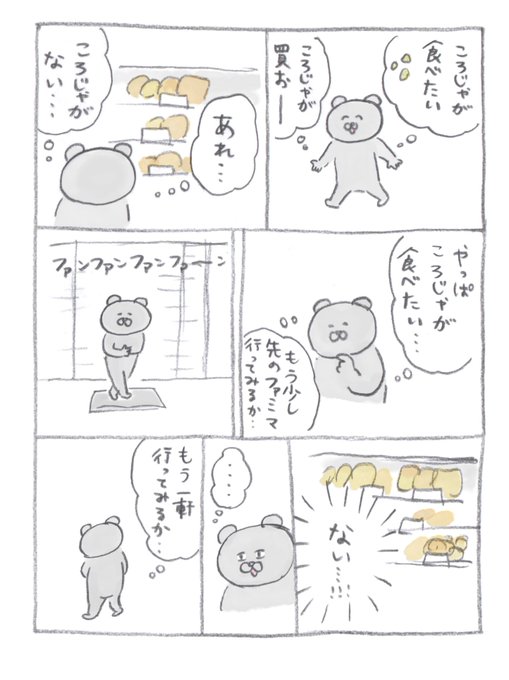 ころじゃが
食べたい
ころじゃが
買おー
あれ…
ころじゃが
ない…
やっぱ
ころじゃが
食べたい…
もう少し
先のファミマ
行ってみるか…
ファンファンファンファーン
ない…!!
・・・・
もう一軒
行ってみるか…